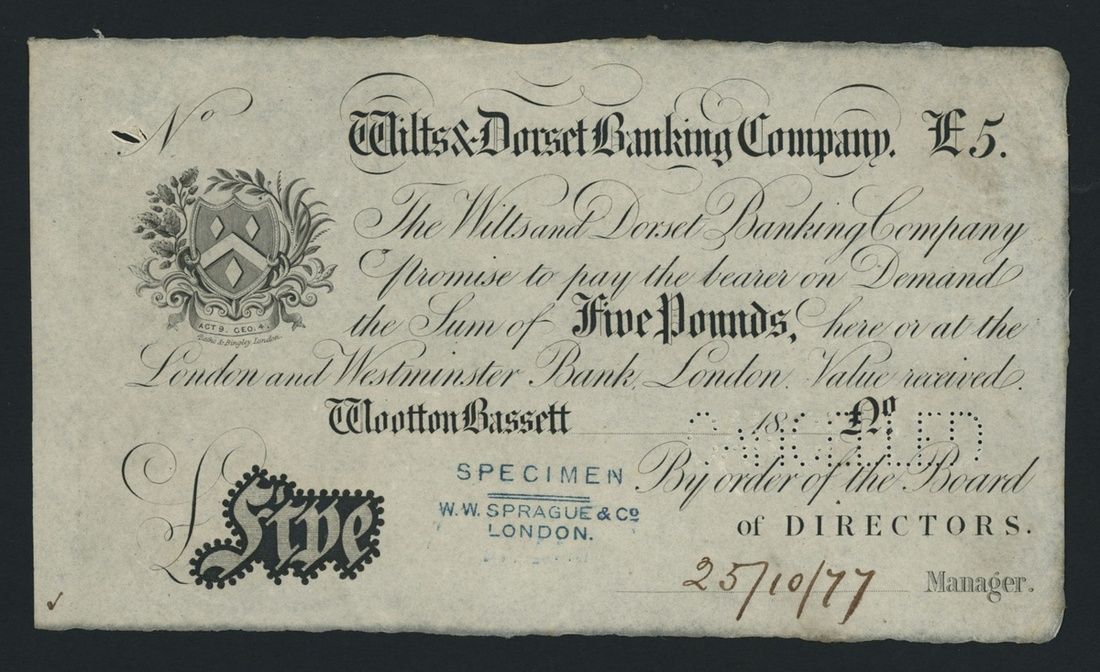 No
Wilts & Dorset Banking Company. £5.
The Wilts and Dorset Banking Company
promise to pay the bearer on Demand
the Sum of Five Pounds, here or at the
London and Westminster Bank, London. Value received.
ACT 9. GEO. 4.
& Bingley, London.
Wootton Bassett 18 No.
CANCELLED
By order of the Board
of DIRECTORS.
£ Five
SPECIMEN
W. W. SPRAGUE & Co
LONDON.
25/10/77 Manager.